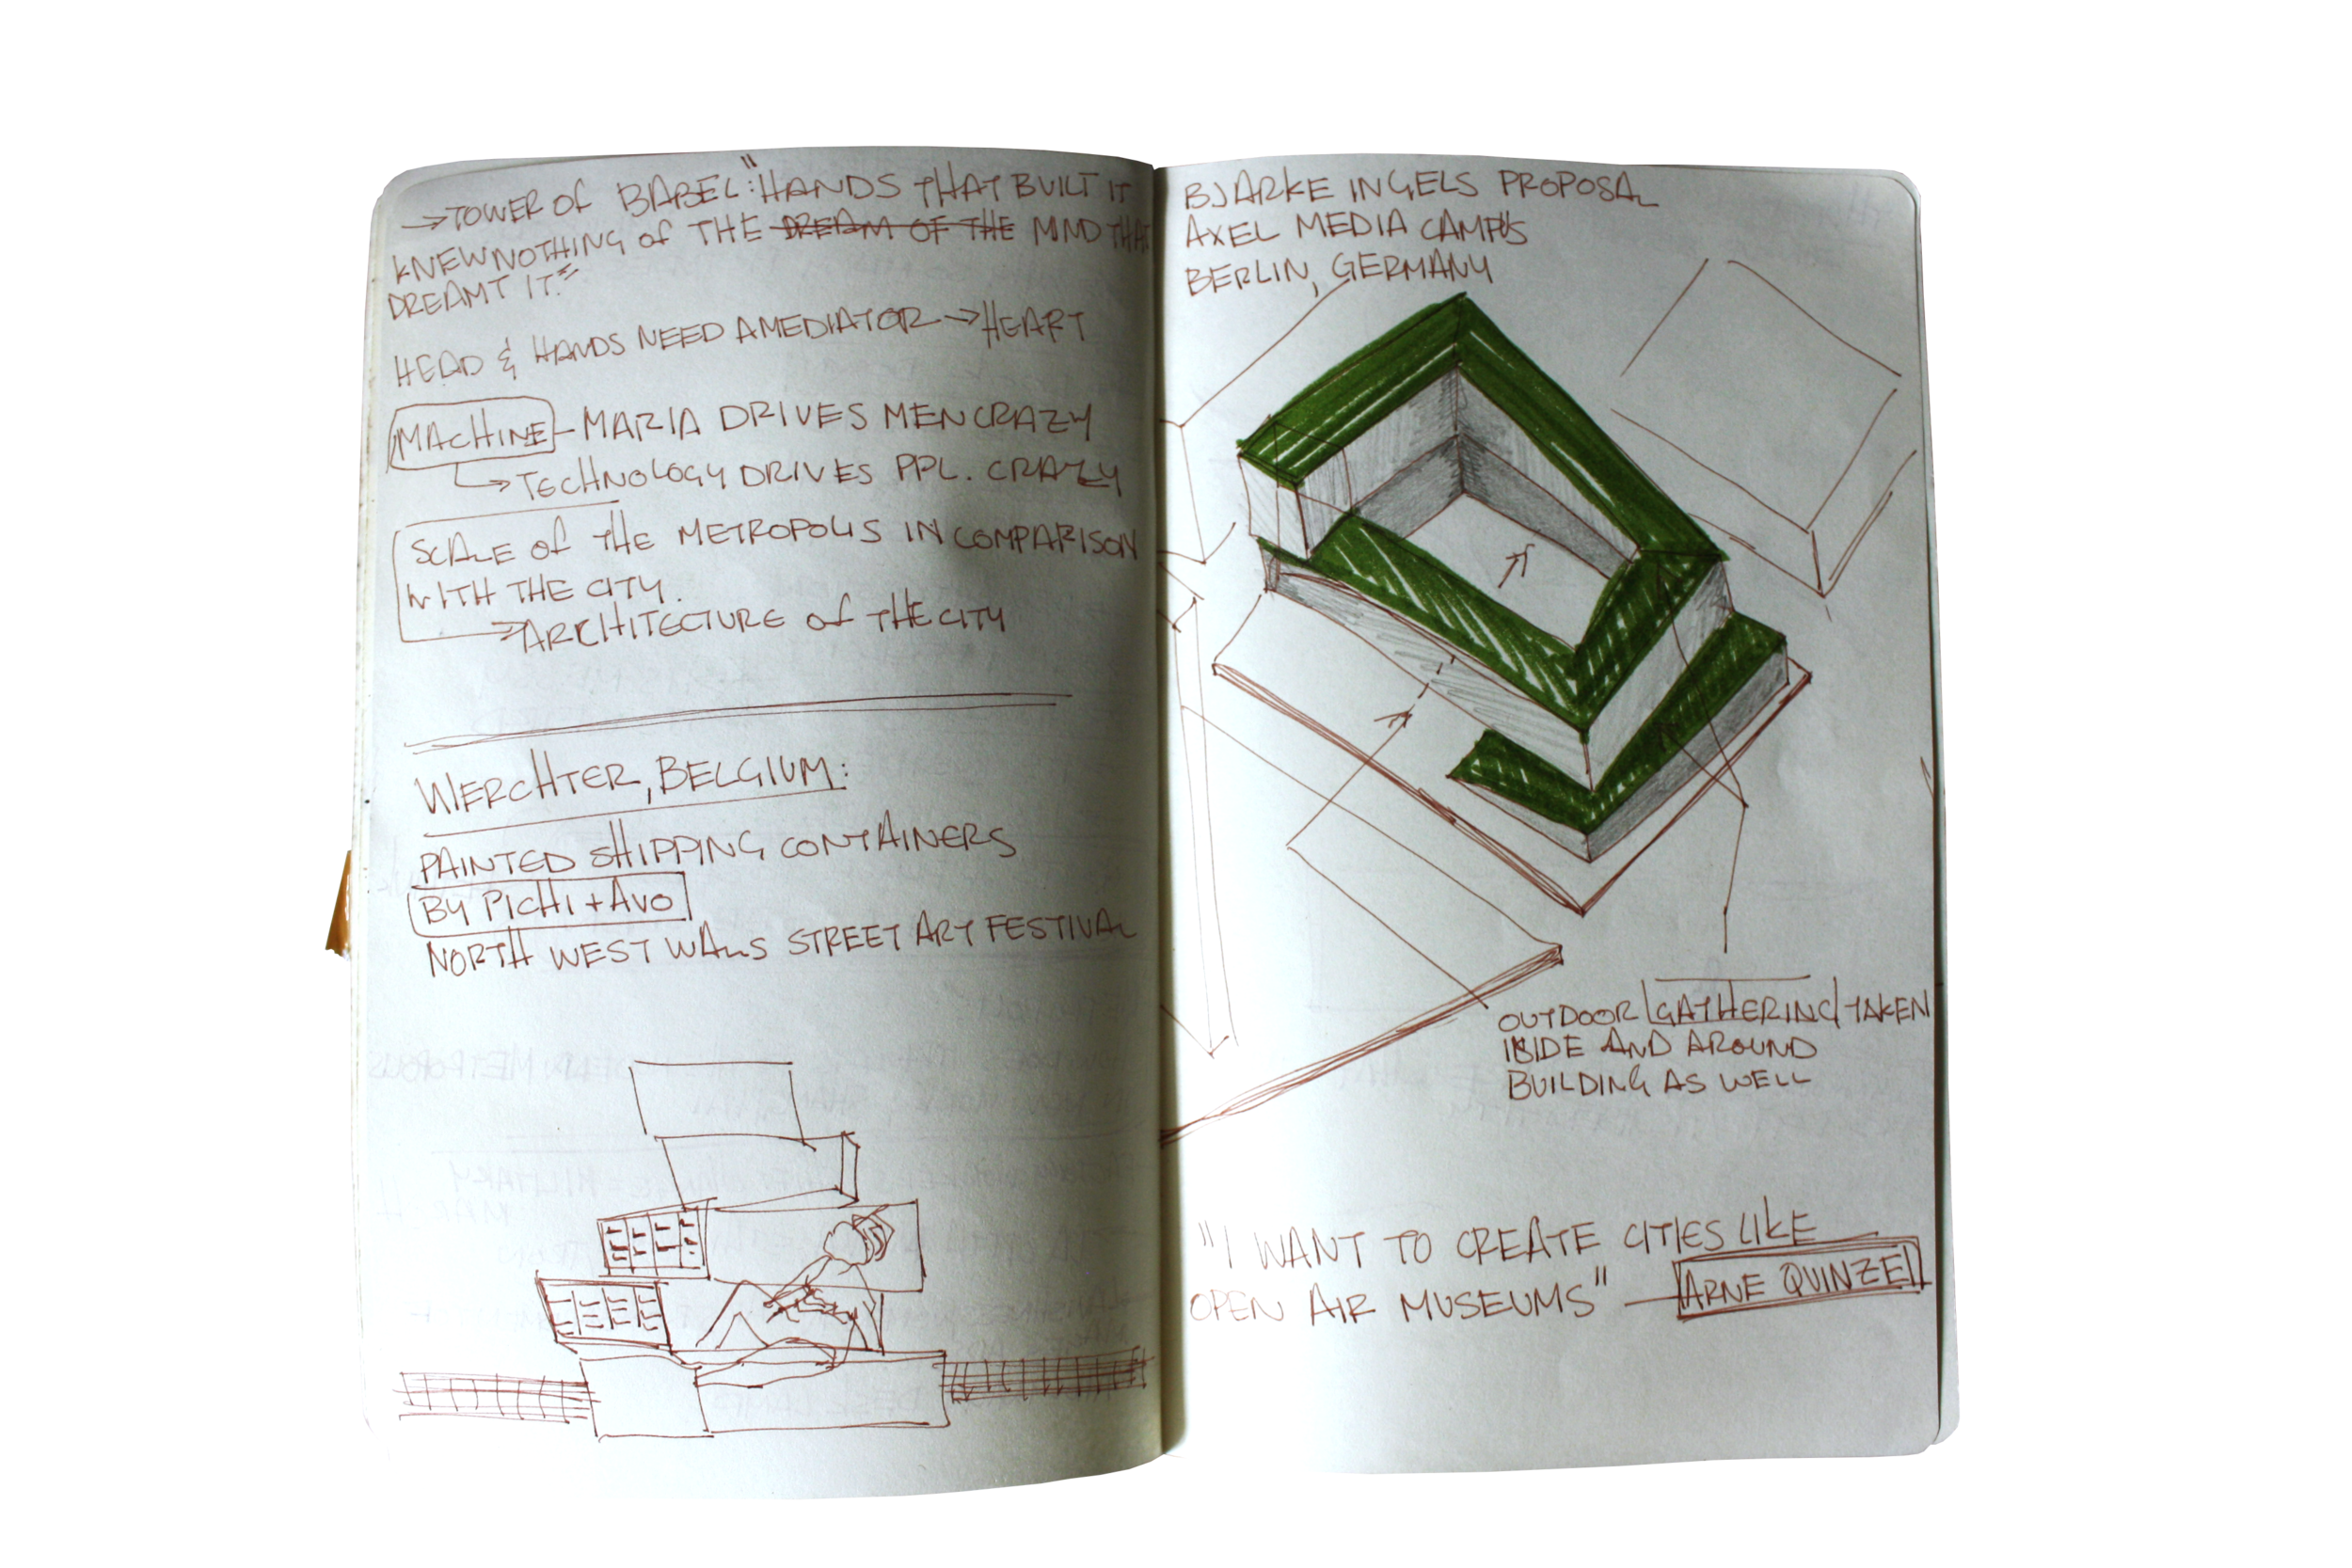 →TOWER OF BABEL: "HANDS THAT BUILT IT
KNEW NOTHING OF THE DREAM OF THE MIND THAT
DREAMT IT."
HEAD & HANDS NEED A MEDIATOR → HEART
MACHINE - MARIA DRIVES MEN CRAZY
→ TECHNOLOGY DRIVES PPL. CRAZY
SCALE OF THE METROPOLIS IN COMPARISON
WITH THE CITY.
→ ARCHITECTURE OF THE CITY
WERCHTER, BELGIUM:
PAINTED SHIPPING CONTAINERS
BY PICHI + AVO
NORTH WEST WALLS STREET ART FESTIVAL
BJARKE INGELS PROPOSAL
AXEL MEDIA CAMPUS
BERLIN, GERMANY
OUTDOOR GATHERING TAKEN
INSIDE AND AROUND
BUILDING AS WELL
"I WANT TO CREATE CITIES LIKE
OPEN AIR MUSEUMS" — ARNE QUINZE